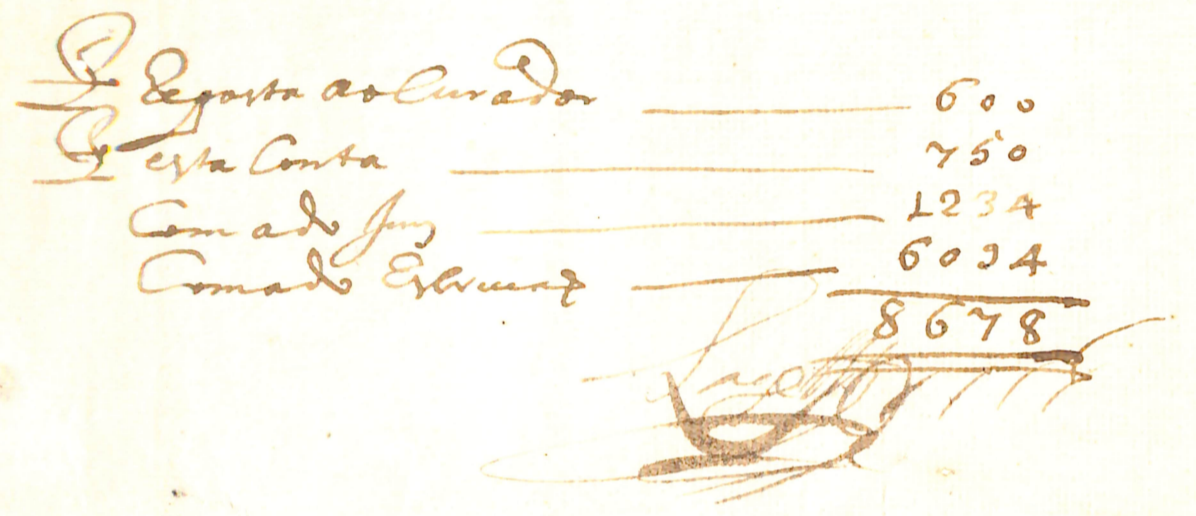 Resposta ao Curador 600
esta Conta 750
Com a do Juiz 1234
Com a do 6094
8678